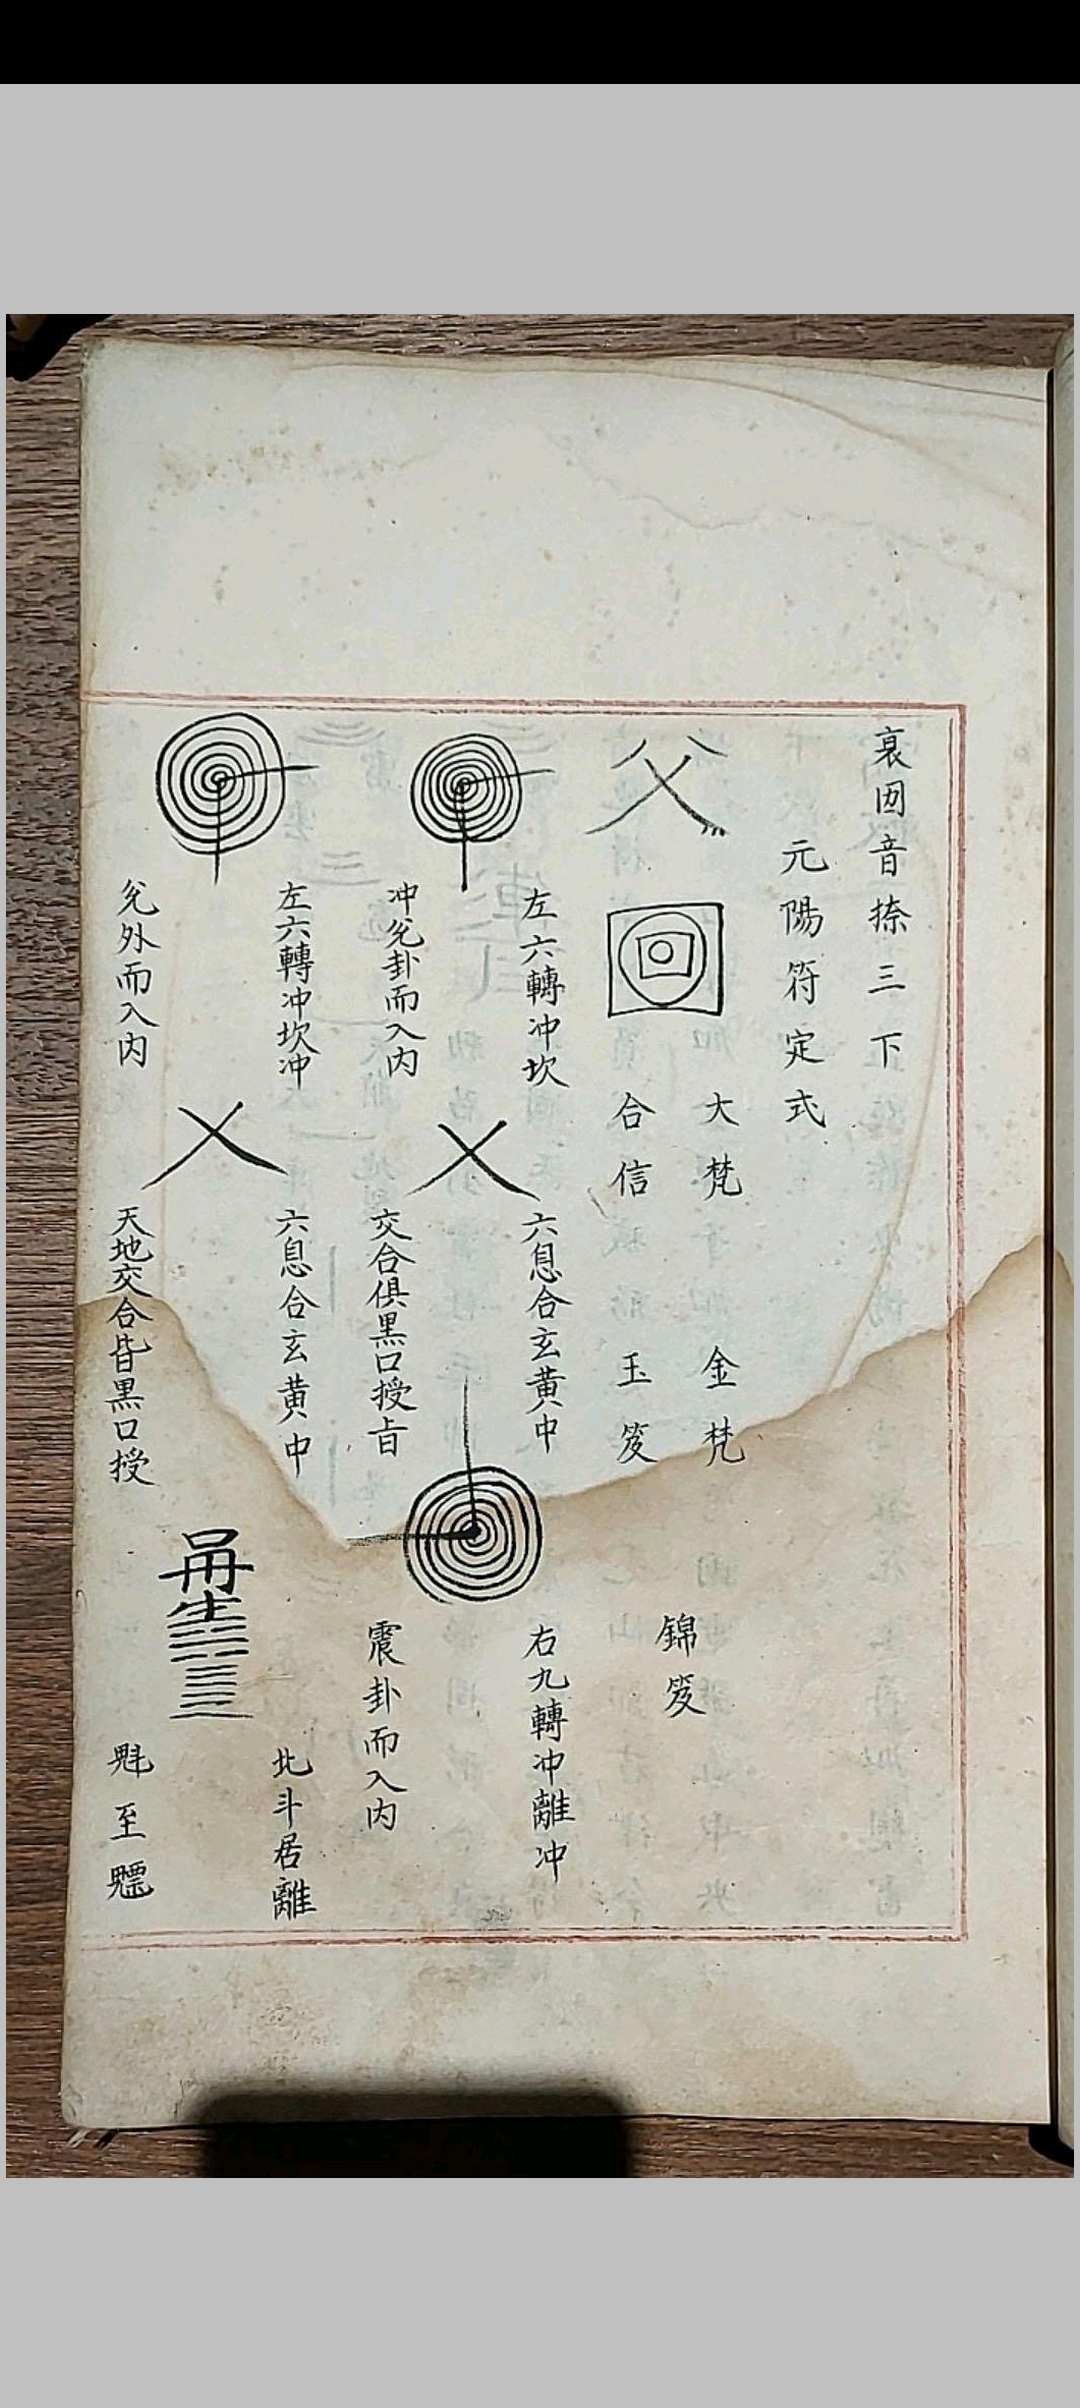 裏囡音捺三下
元陽符定式
大梵
合信
金梵
玉笈
錦笈
左六轉冲坎
冲兊卦而入内
六息合玄黄中
交合俱黑口授旨
右九轉冲離冲
震卦而入内
左六轉冲坎冲
兊外而入内
六息合玄黄中
天地交合皆黑口授
北斗居離
魁至魒